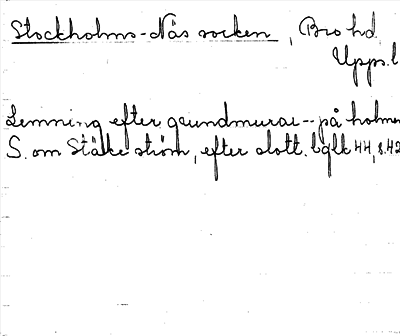 Stockholms-Näs socken, Bro hd
Uppl.
Lemning efter grundmurar -- på holmen
S. om Stäke ström, efter slott. bqlk 44, s. 42